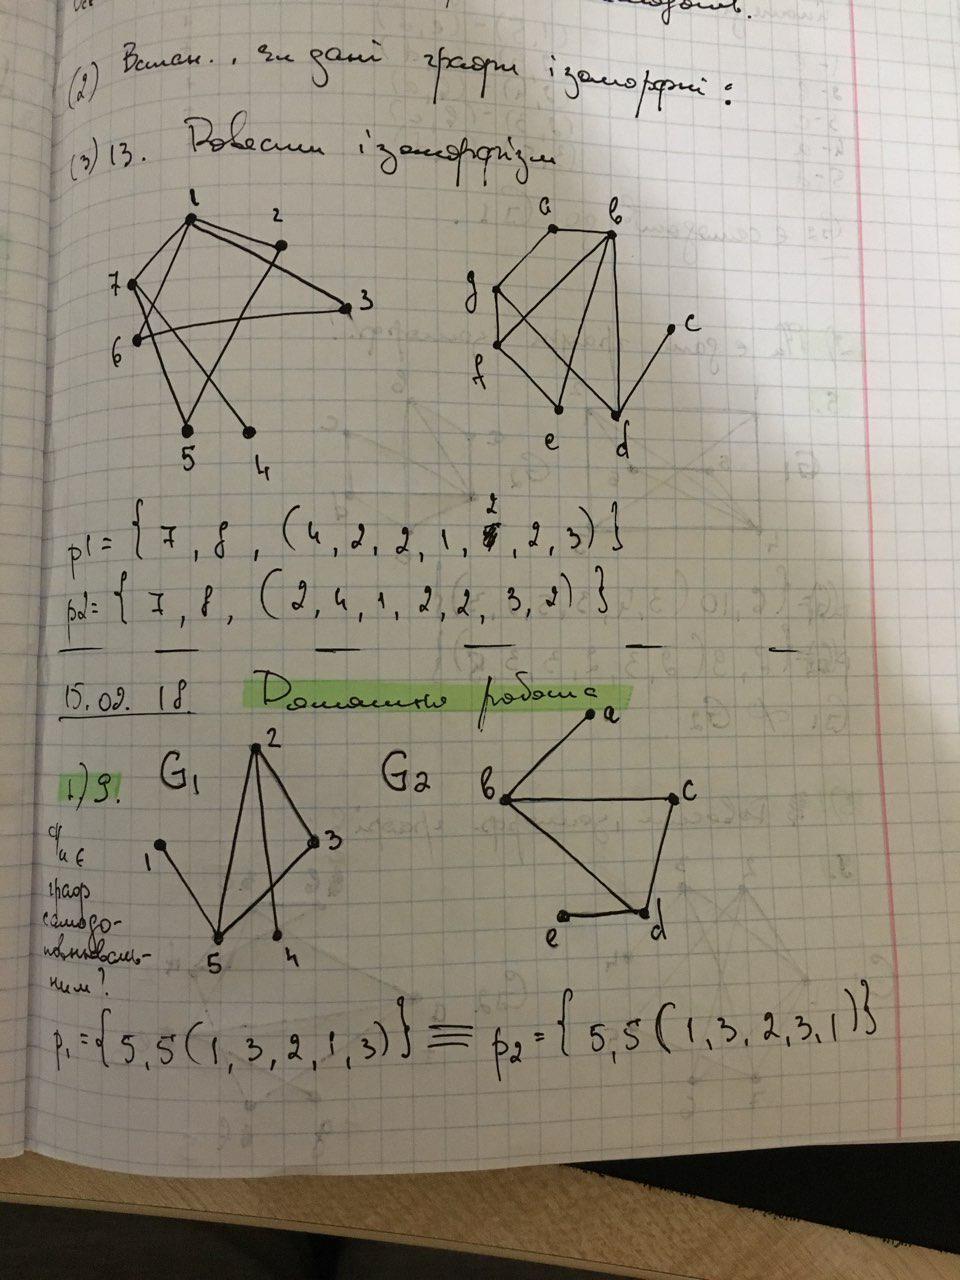 (2) Визн.., чи дані графи ізоморфні:
(3) 13. Довести ізоморфізм
1
2
7
3
6
5
4
a
b
g
c
f
e
d
p1 = { 7, 8, (4, 2, 2, 1, 2, 2, 3) }
p2 = { 7, 8, (2, 4, 1, 2, 2, 3, 2) }
15.02.18 Домашня робота
1) 9. G1
чи є
граф
самодо-
повнюваль-
ним?
2
1
3
5
4
G2
a
b
c
e
d
p1 = { 5, 5 (1, 3, 2, 1, 3) } ≡ p2 = { 5, 5 (1, 3, 2, 3, 1) }